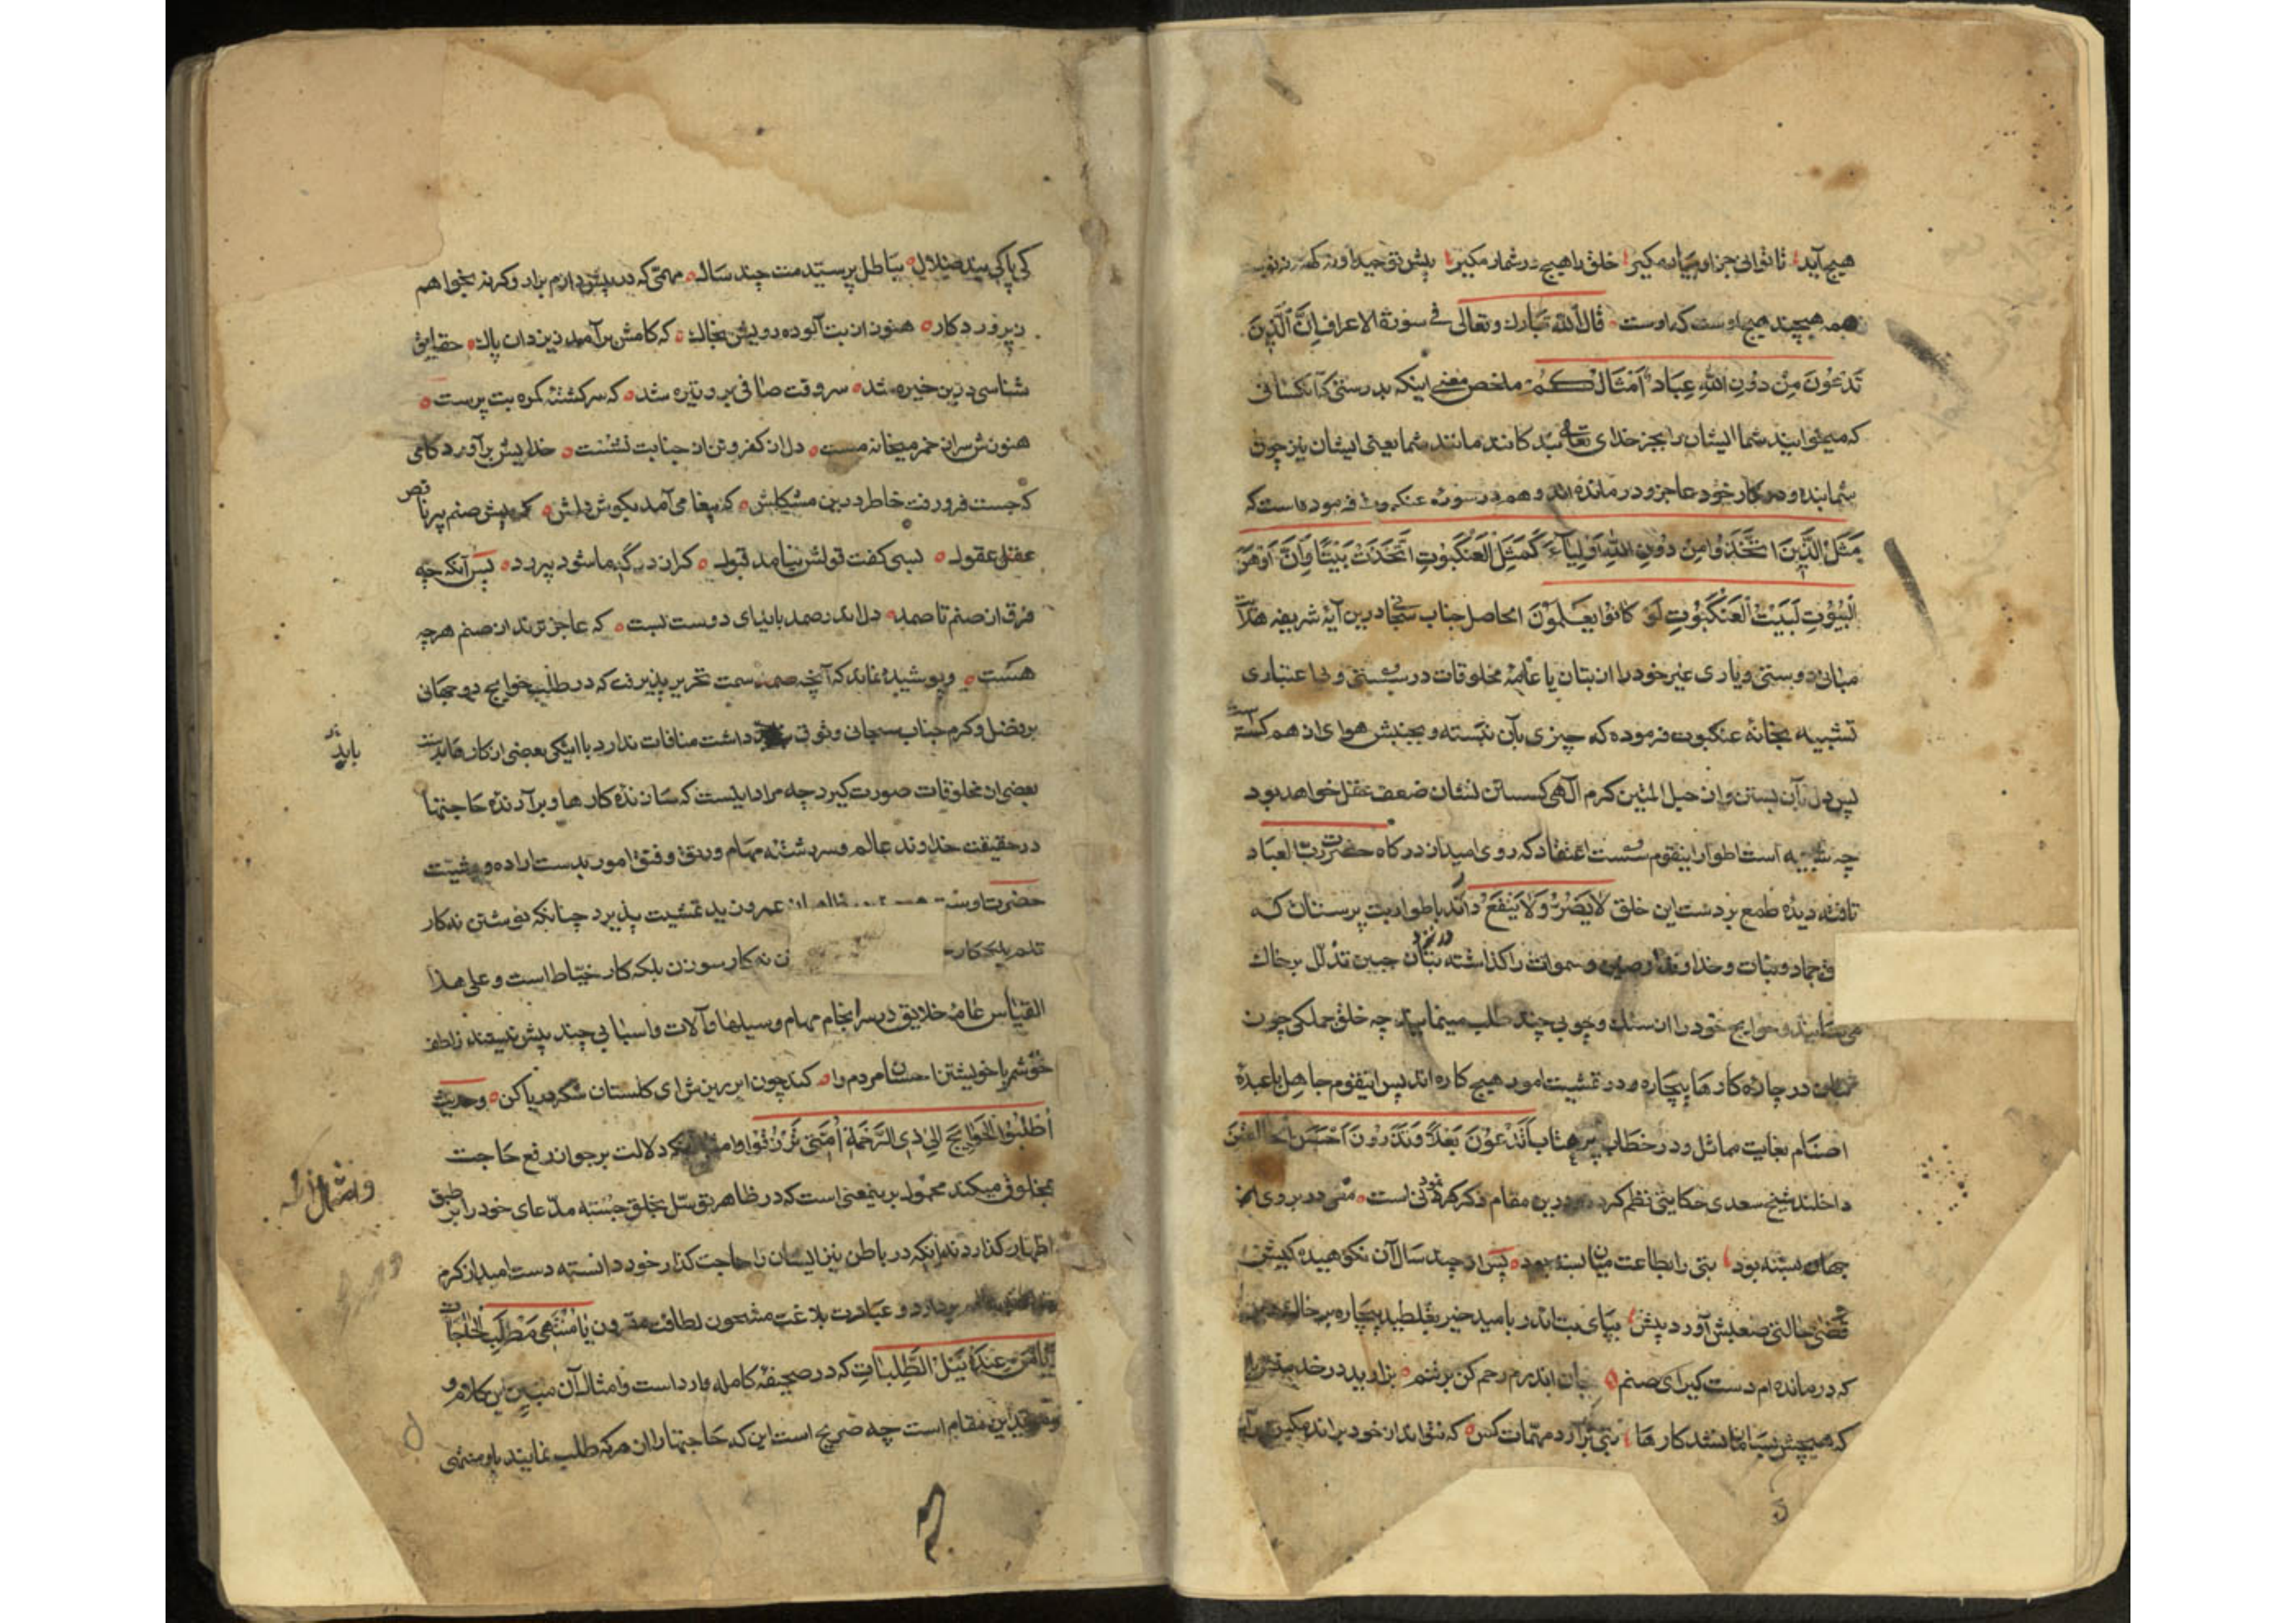 هیچ آید تا توانی جز او بیاد مکیر خلق را هیچ در شمار مکیر پیش توحید او نه کهنه نه نوست
همه هیچند هیچ اوست که اوست قال الله تبارک و تعالی فی سورة الاعراف اِنَّ الَّذِینَ
تَدْعُونَ مِنْ دُونِ اللهِ عِبَادٌ اَمْثَالُکُمْ ملخص معنی اینکه بدرستی که آنکسانی
که میخوانید شما ایشان را بجز خدای تعالی بندکانند مانند شما یعنی ایشان نیز چون
شما بنده و در کار خود عاجز و درمانده‌اند و هم در سوره عنکبوت فرموده است که
مَثَلُ الَّذِینَ اتَّخَذُوا مِنْ دُونِ اللهِ اَوْلِیَآءَ کَمَثَلِ الْعَنْکَبُوتِ اتَّخَذَتْ بَیْتًا وَاِنَّ اَوْهَنَ
الْبُیُوتِ لَبَیْتُ الْعَنْکَبُوتِ لَوْ کَانُوا یَعْلَمُونَ الحاصل جناب سبحانی درین آیۀ شریفه
مبانی دوستی و یاری غیر خود را از بتان یا عامۀ مخلوقات در سستی و بی اعتباری
تشبیه بخانۀ عنکبوت فرموده که چیزی بآن نبسته و بجنبش هوای از هم کسسته
پس دل بآن بستن و از حبل المتین کرم الهی کسستن نشان ضعف عقل خواهد بود
چه شبیه است اطوار اینقوم سست اعتقاد که روی امید از درکاه حضرت رب العباد
تافته دیدۀ طمع بر دست این خلق لَایَضُرُّ وَلَایَنْفَعُ دارند باطوار بت پرستان که
جماد و بتات و خداوند ارضین و سموات را کذاشته در نزد بتان جبین تذلل بر خاک
می‌سایند و حوایج خود را از سنک و چوبی چند طلب مینمایند چه خلق جملکی چون
بتان در چارۀ کارها بیچاره و در تمشیت امور هیچ کاره‌اند پس اینقوم جاهل با عبدۀ
اصنام بغایت مماثل و در خطاب اَتَدْعُونَ بَعْلًا وَتَذَرُونَ اَحْسَنَ الْخَالِقِینَ
داخلند شیخ سعدی حکایتی نظم کرده درین مقام ذکر کردنی است مغی در بروی از
جهان بسته بود بتی را بطاعت میان بسته بود پس از چند سال آن نکوهیده کیش
قضی حالتی صعبش آورد پیش بپای بت اندر بامید خیر بغلطید بیچاره بر خاک
که درمانده‌ام دست کیر ای صنم بجان اندرم رحم کن برتنم بزارید در خدمتش
که هیچش بسامان نشد کارها بتی چون برآرد مهمات کس که نتواند از خود براند مکس
کی پاکی بند ضلال بباطل پرستیدمت چند سال مهمی که در پیش دارم برار وکرنه بخواهم
ز پروردکار هنوز از بت آلوده رویش بخاک که کامش برآمد ز یزدان پاک حقایق
شناسی درین خیره شد سر وقت صافی برو تیره شد که سرکشتۀ کمره بت پرست
هنوزش سر از خمر میخانه مست دل از کفر و تن از جنابت نشست خدایش برآورد کامی
که جست فرو رفت خاطر درین مشکلش که پیغامی آمد بکوش دلش که پیش صنم پیر ناقص
عقل عقول بسی کفت قولش نیامد قبول کر از درکه ما شود نیز رد پس آنکه چه
فرق از صنم تا صمد دل اندر صمد باید ای دوست بست که عاجزترند از صنم هرچه
هست و پوشیده نماند که آنچه سمت تحریر پذیرفت که در طلب حوایج دو جهانی
بر فضل و کرم جناب سبحانی وثوق باید داشت منافات ندارد با اینکه بعضی از کارها بدست
بعضی از مخلوقات صورت کیرد چه مراد اینست که سازندۀ کارها و برآرندۀ حاجتها
در حقیقت خداوند عالم و سررشته مهام و رتق و فتق امور بدست اراده و مشیت
حضرت اوست عمرو زید تمشیت پذیرد چنانکه نوشتن نه کار
قلم بلکه کار نه کار سوزن بلکه کار خیاط است و علی هذا
القیاس عامۀ خلایق در سرانجام مهام وسیلها و آلات و اسبابی چند بیش نیستند ز لطف
خوشم با خویشتن احسان مردم را کند چون ابر ریزش رای کلستان شکر دریا کن وحدیث
اُطْلُبُوا الْحَوَایِجَ اِلَی ذِی الرَّحْمَةِ اُمَّتِی تُرْزَقُوا وامثال آنکه دلالت بر جواز رفع حاجت
بمخلوق میکند محمول برینمعنی است که در ظاهر توسل بخلق جسته مدعای خود را بر طبق
اظهار کذارد نه اینکه در باطن نیز ایشان را حاجت کذار خود دانسته دست امید از کرم
بردارد و عبارت بلاغت مشحون لطافت مقرون یَا مُنْتَهَی مَطْلَبِ الْحَاجَاتِ
یَا مَنْ عِنْدَهُ نَیْلُ الطَّلِبَاتِ که در صحیفۀ کامله وارد است وامثال آن مبین این کلام و
این مقام است چه صریح است این که حاجتها را از هرکه طلب نمایند باو منتهی
باید
وامثال آنکه